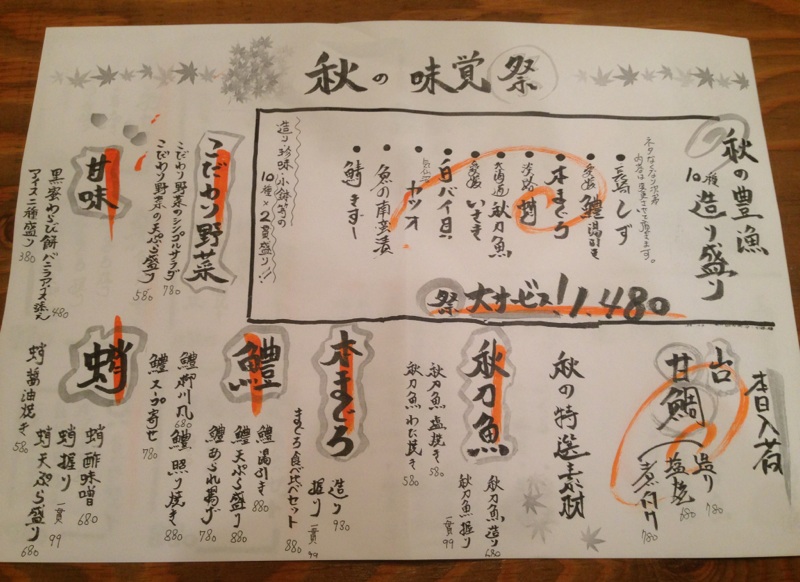 秋の味覚祭
秋の豊漁
10種造り盛り
ネタなくなり次第
内容は変更させて頂きます。
長崎しず
愛媛鱧湯引き
本まぐろ
淡路蛸
北海道秋刀魚
愛媛いさき
白バイ貝
カツオ
魚の南蛮漬
鯖きずし
造り珍味小鉢等の
10種×2貫盛り!!
祭大サービス!1,480
こだわり野菜
こだわり野菜のシンプルサラダ 780
こだわり野菜の天ぷら盛り 580
甘味
黒蜜わらび餅バニラアイス添え 480
アイス二種盛り 380
本日入荷
山口
甘鯛
造り 780
塩焼 680
煮付け 780
秋の特選素材
秋刀魚
秋刀魚造り 680
秋刀魚握り 一貫99
秋刀魚塩焼き 580
秋刀魚わた焼き 580
本まぐろ
造り 930
握り 一貫99
まぐろ食べ比べセット 880
鱧
鱧湯引き 880
鱧天ぷら盛り 880
鱧あられ揚げ 780
鱧照り焼き 880
鱧柳川風 680
鱧スープ寄せ 780
蛸
蛸酢味噌 680
蛸握り 一貫99
蛸天ぷら盛り 680
蛸醤油焼き 580